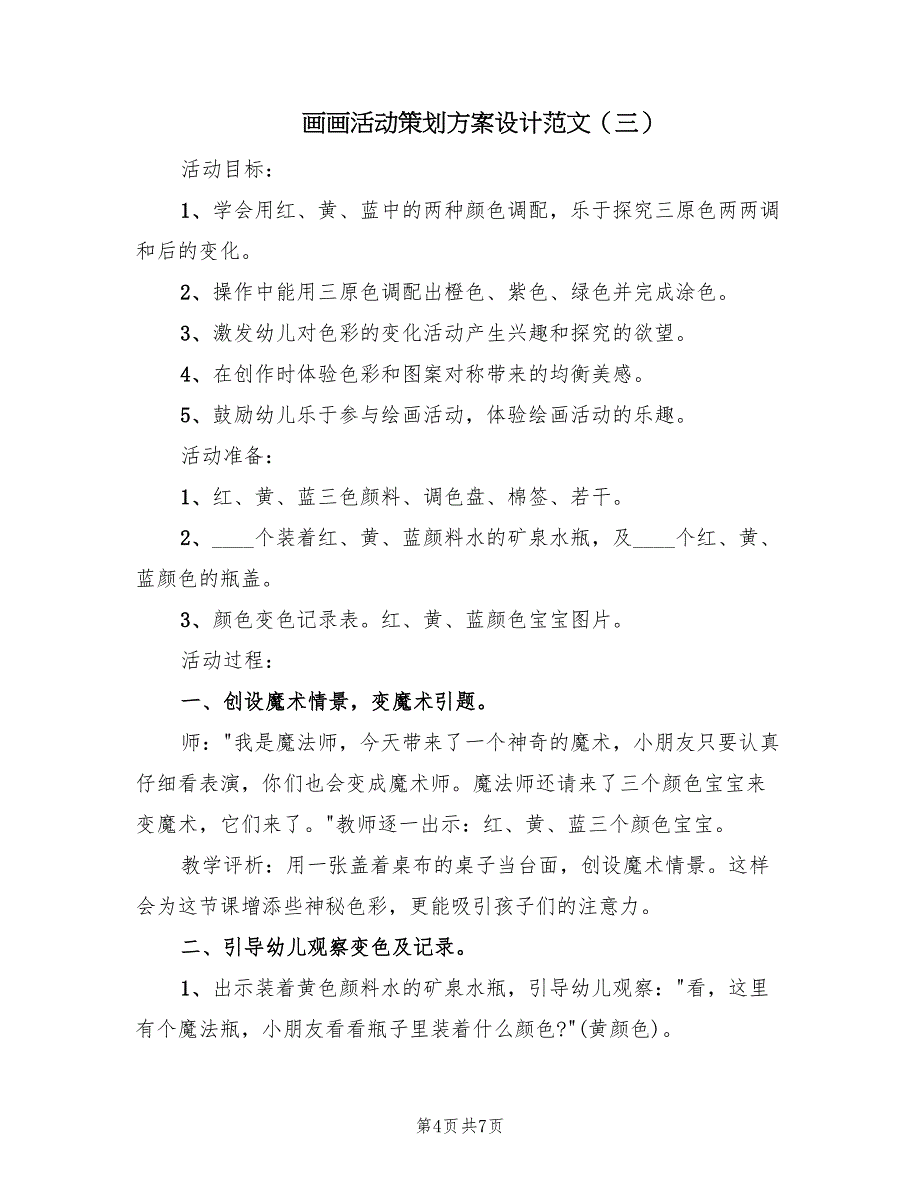 画画活动策划方案设计范文（三）
活动目标：
1、学会用红、黄、蓝中的两种颜色调配，乐于探究三原色两两调
和后的变化。
2、操作中能用三原色调配出橙色、紫色、绿色并完成涂色。
3、激发幼儿对色彩的变化活动产生兴趣和探究的欲望。
4、在创作时体验色彩和图案对称带来的均衡美感。
5、鼓励幼儿乐于参与绘画活动，体验绘画活动的乐趣。
活动准备：
1、红、黄、蓝三色颜料、调色盘、棉签、若干。
2、____个装着红、黄、蓝颜料水的矿泉水瓶，及____个红、黄、
蓝颜色的瓶盖。
3、颜色变色记录表。红、黄、蓝颜色宝宝图片。
活动过程：
一、创设魔术情景，变魔术引题。
师："我是魔法师，今天带来了一个神奇的魔术，小朋友只要认真
仔细看表演，你们也会变成魔术师。魔法师还请来了三个颜色宝宝来
变魔术，它们来了。"教师逐一出示：红、黄、蓝三个颜色宝宝。
教学评析：用一张盖着桌布的桌子当台面，创设魔术情景。这样
会为这节课增添些神秘色彩，更能吸引孩子们的注意力。
二、引导幼儿观察变色及记录。
1、出示装着黄色颜料水的矿泉水瓶，引导幼儿观察："看，这里
有个魔法瓶，小朋友看看瓶子里装着什么颜色?"(黄颜色)。
第4页共7页